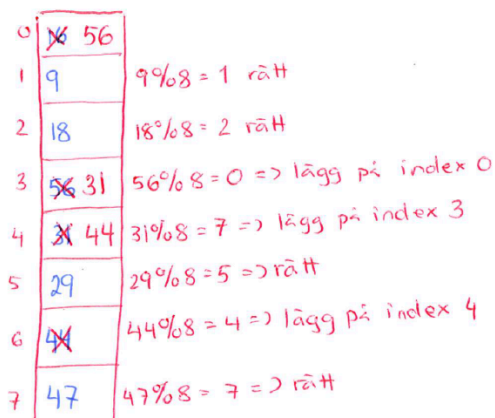 0 16 56
1 9 9%8 = 1 rätt
2 18 18%8 = 2 rätt
3 56 31 56%8 = 0 => lägg på index 0
4 31 44 31%8 = 7 => lägg på index 3
5 29 29%8 = 5 => rätt
6 44 44%8 = 4 => lägg på index 4
7 47 47%8 = 7 => rätt